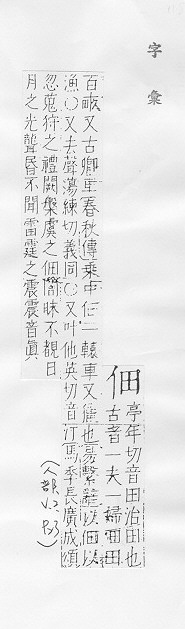 字彙
佃
亭年切音田治田也
古者一夫一婦佃田
百畝又古卿車春秋傳乘中佃一轅車又獵也易繫辭以佃以
漁○又去聲蕩練切義同○又叶他英切音汀馬季長廣成頌
忽蒐狩之禮闕槃虞之佃闇昧不覩日
月之光聾昏不聞雷霆之震震音眞
(人部 V.2 P.23)